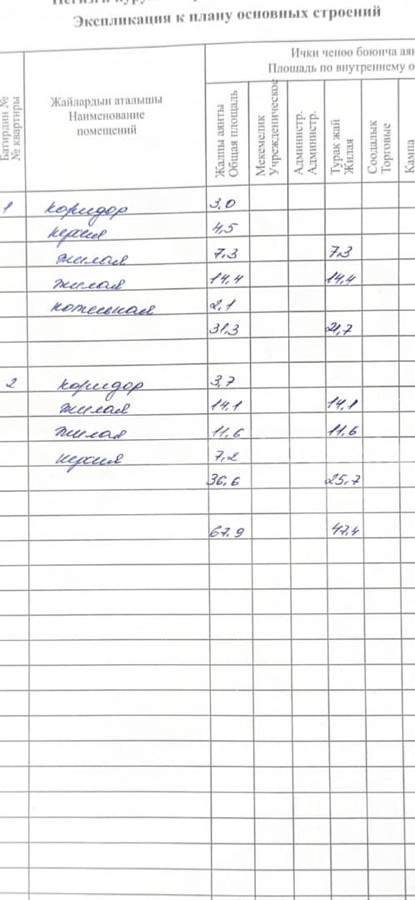 Экспликация к плану основных строений
Ички ченөө боюнча аян
Площадь по внутреннему о
Батирдин №
№ квартиры
Жайлардын аталышы
Наименование
помещений
Жалпы аянты
Общая площадь
Мекемелик
Учрежденическое
Администр.
Администр.
Турак жай
Жилая
Соодалык
Торговые
Кампа
1 коридор 3,0
кухня 4,5
жилая 7.3 7.3
жилая 14,4 14,4
котельная 2,1
31,3 21,7
2 коридор 3,7
жилая 14,1 14,1
жилая 11,6 11,6
кухня 7,2
36,6 25,7
67.9 47.4